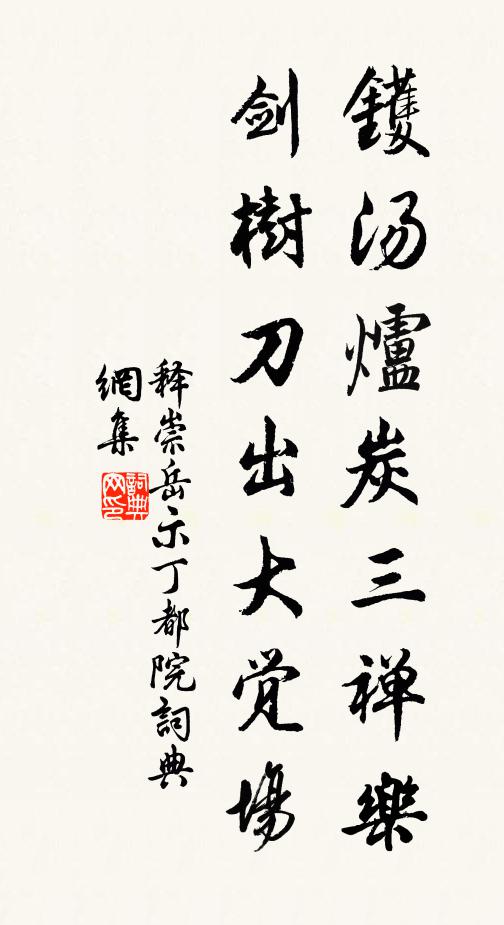 鑊汤爐炭三禅樂
劍樹刀出大觉場
释崇岳示丁都院詞典
網集
詞典
网印